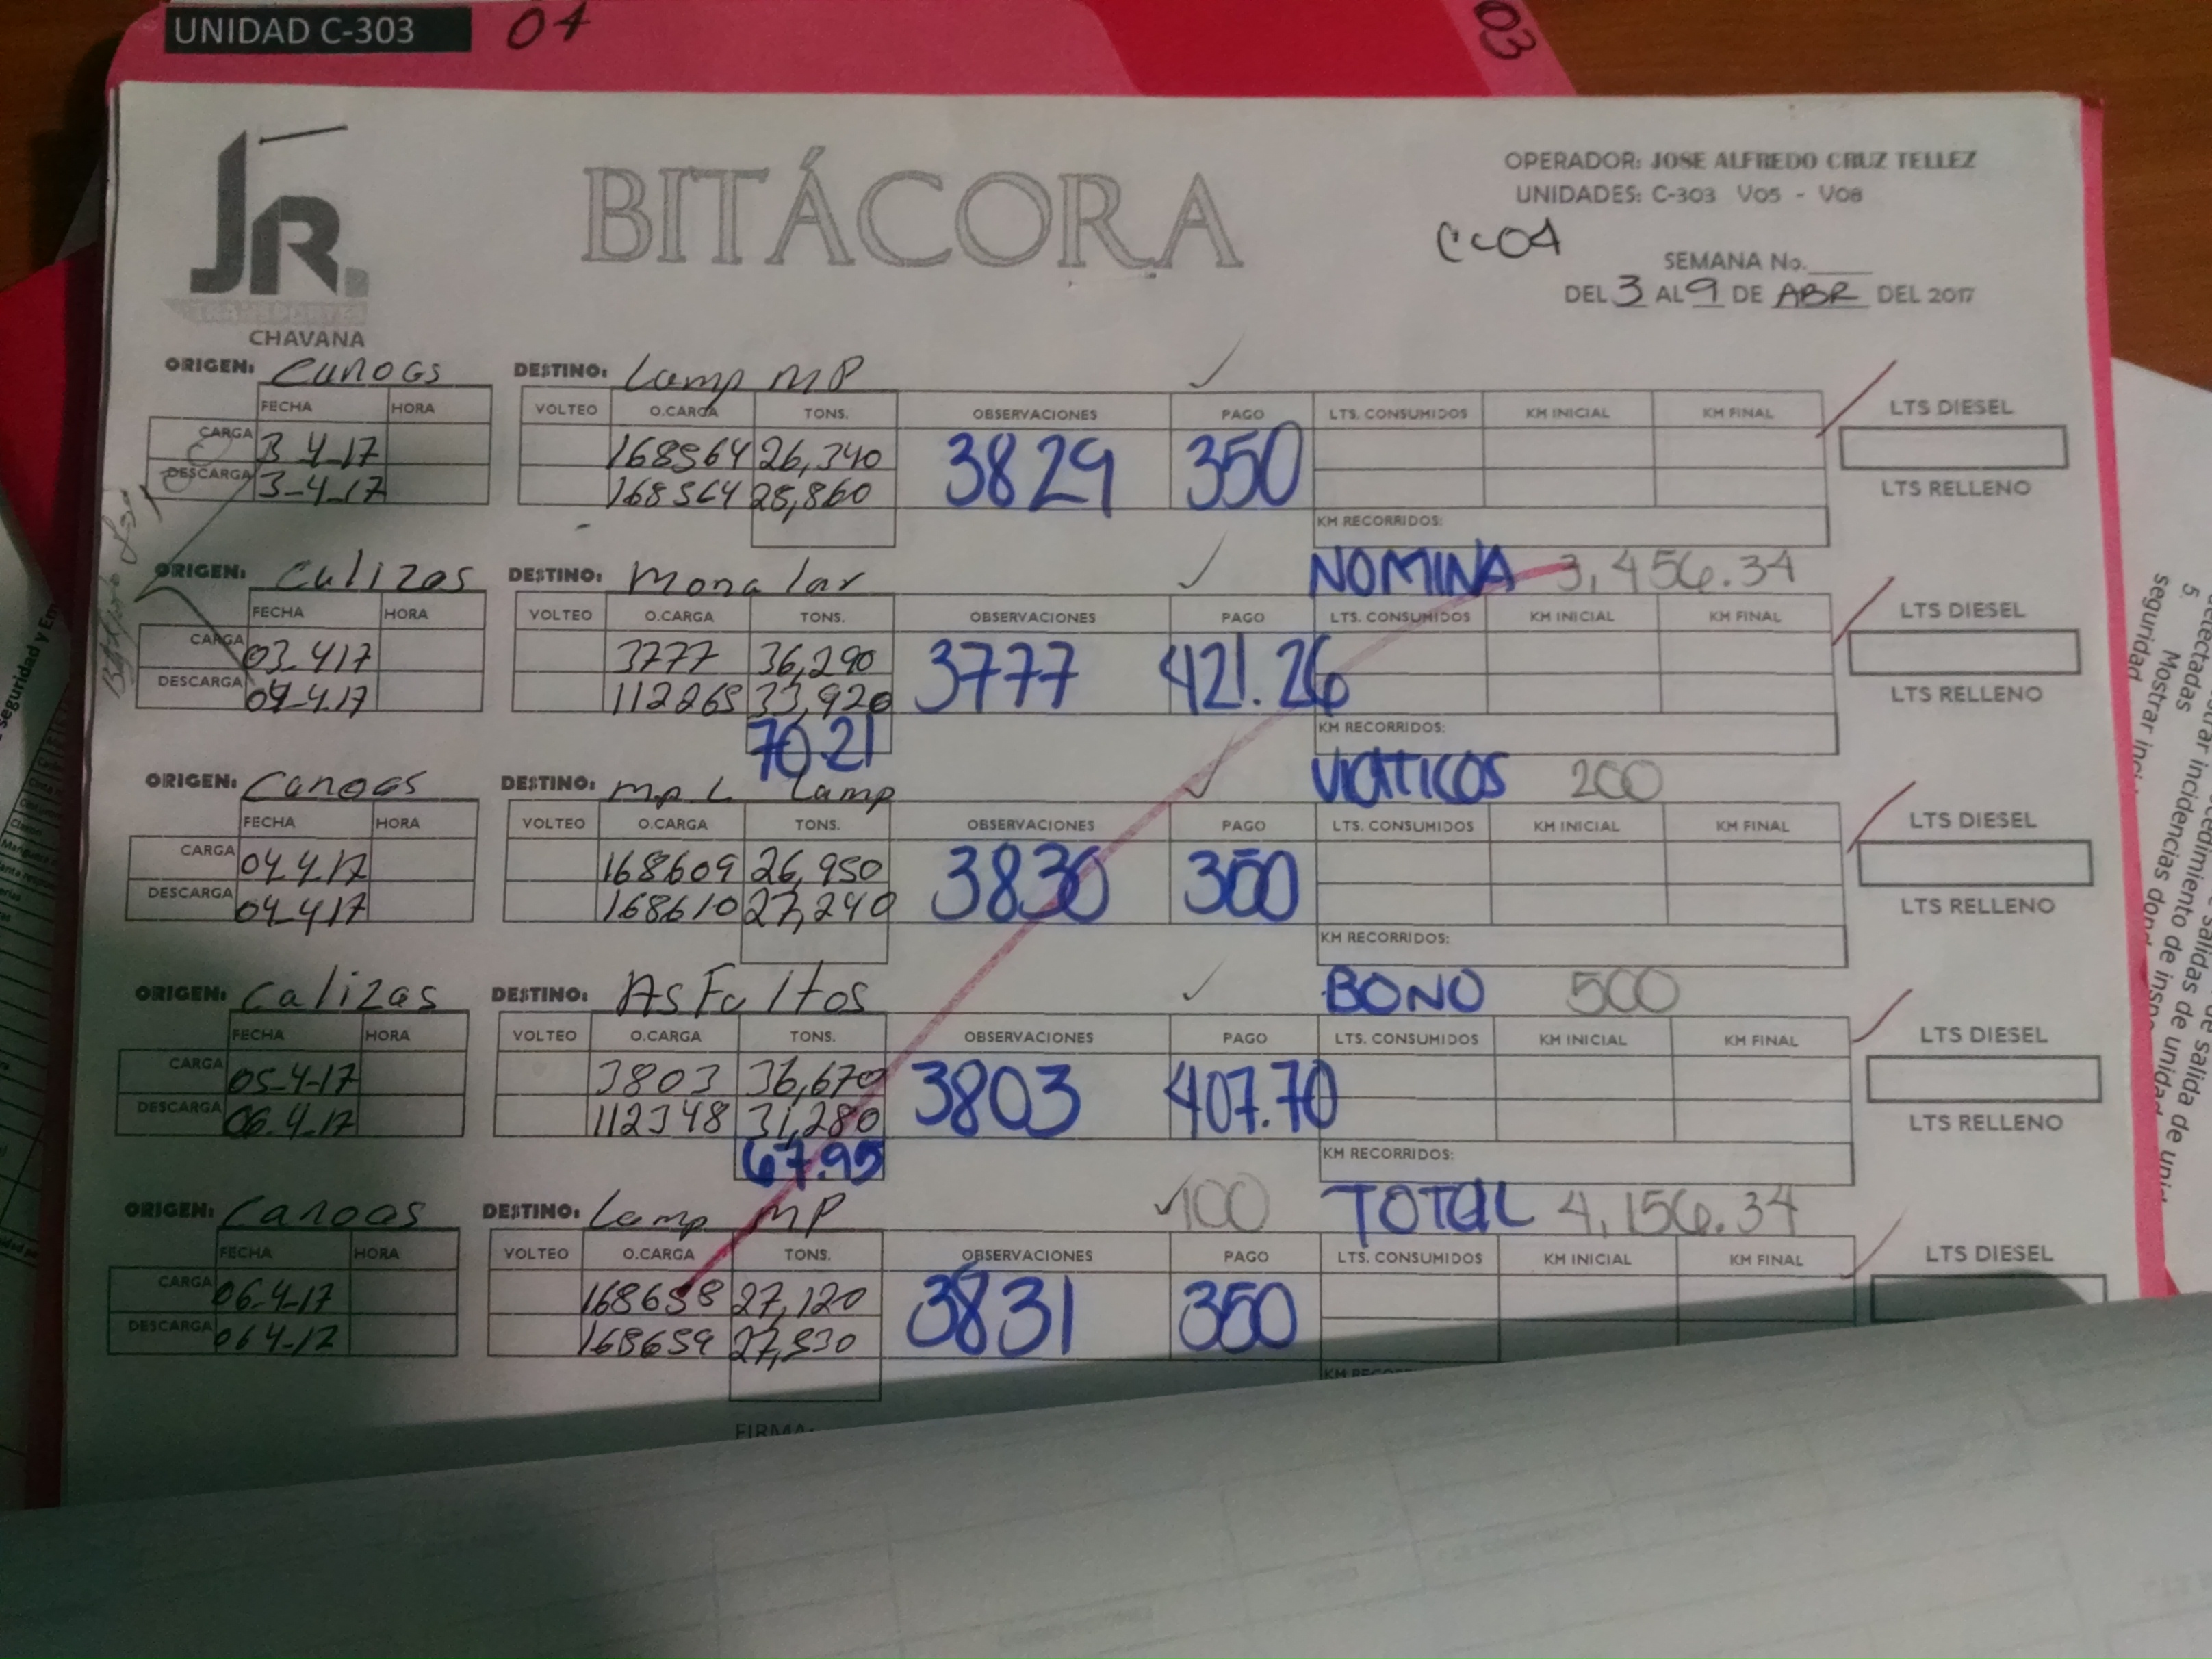 UNIDAD C-303 04 03
JR.
TRANSPORTES
CHAVANA
BITÁCORA
OPERADOR: JOSE ALFREDO CRUZ TELLEZ
UNIDADES: C-303 V05 - V08
CC04
SEMANA No.
DEL 3 AL 9 DE ABR DEL 2017
ORIGEN: Canoas DESTINO: Lamp MP
FECHA HORA VOLTEO O.CARGA TONS. OBSERVACIONES PAGO LTS. CONSUMIDOS KM INICIAL KM FINAL LTS DIESEL
CARGA 3-4-17 168564 26,340 3829 350
DESCARGA 3-4-17 168564 28,860 LTS RELLENO
KM RECORRIDOS:
ORIGEN: Calizas DESTINO: Mona lar NOMINA 3,456.34
FECHA HORA VOLTEO O.CARGA TONS. OBSERVACIONES PAGO LTS. CONSUMIDOS KM INICIAL KM FINAL LTS DIESEL
CARGA 03-4-17 3777 36,290 3777 421.26
DESCARGA 04-4-17 112265 33,920 LTS RELLENO
70.21 KM RECORRIDOS:
ORIGEN: Canoas DESTINO: mp L Lamp VIATICOS 200
FECHA HORA VOLTEO O.CARGA TONS. OBSERVACIONES PAGO LTS. CONSUMIDOS KM INICIAL KM FINAL LTS DIESEL
CARGA 04-4-17 168609 26,950 3830 350
DESCARGA 04-4-17 168610 27,240 LTS RELLENO
KM RECORRIDOS:
ORIGEN: Calizas DESTINO: Asfaltos BONO 500
FECHA HORA VOLTEO O.CARGA TONS. OBSERVACIONES PAGO LTS. CONSUMIDOS KM INICIAL KM FINAL LTS DIESEL
CARGA 05-4-17 3803 36,670 3803 407.70
DESCARGA 06-4-17 112348 31,280 LTS RELLENO
67.95 KM RECORRIDOS:
ORIGEN: Canoas DESTINO: Lamp MP 100 TOTAL 4,156.34
FECHA HORA VOLTEO O.CARGA TONS. OBSERVACIONES PAGO LTS. CONSUMIDOS KM INICIAL KM FINAL LTS DIESEL
CARGA 06-4-17 168658 27,120 3831 350
DESCARGA 06 4-17 168659 27,530
FIRMA: